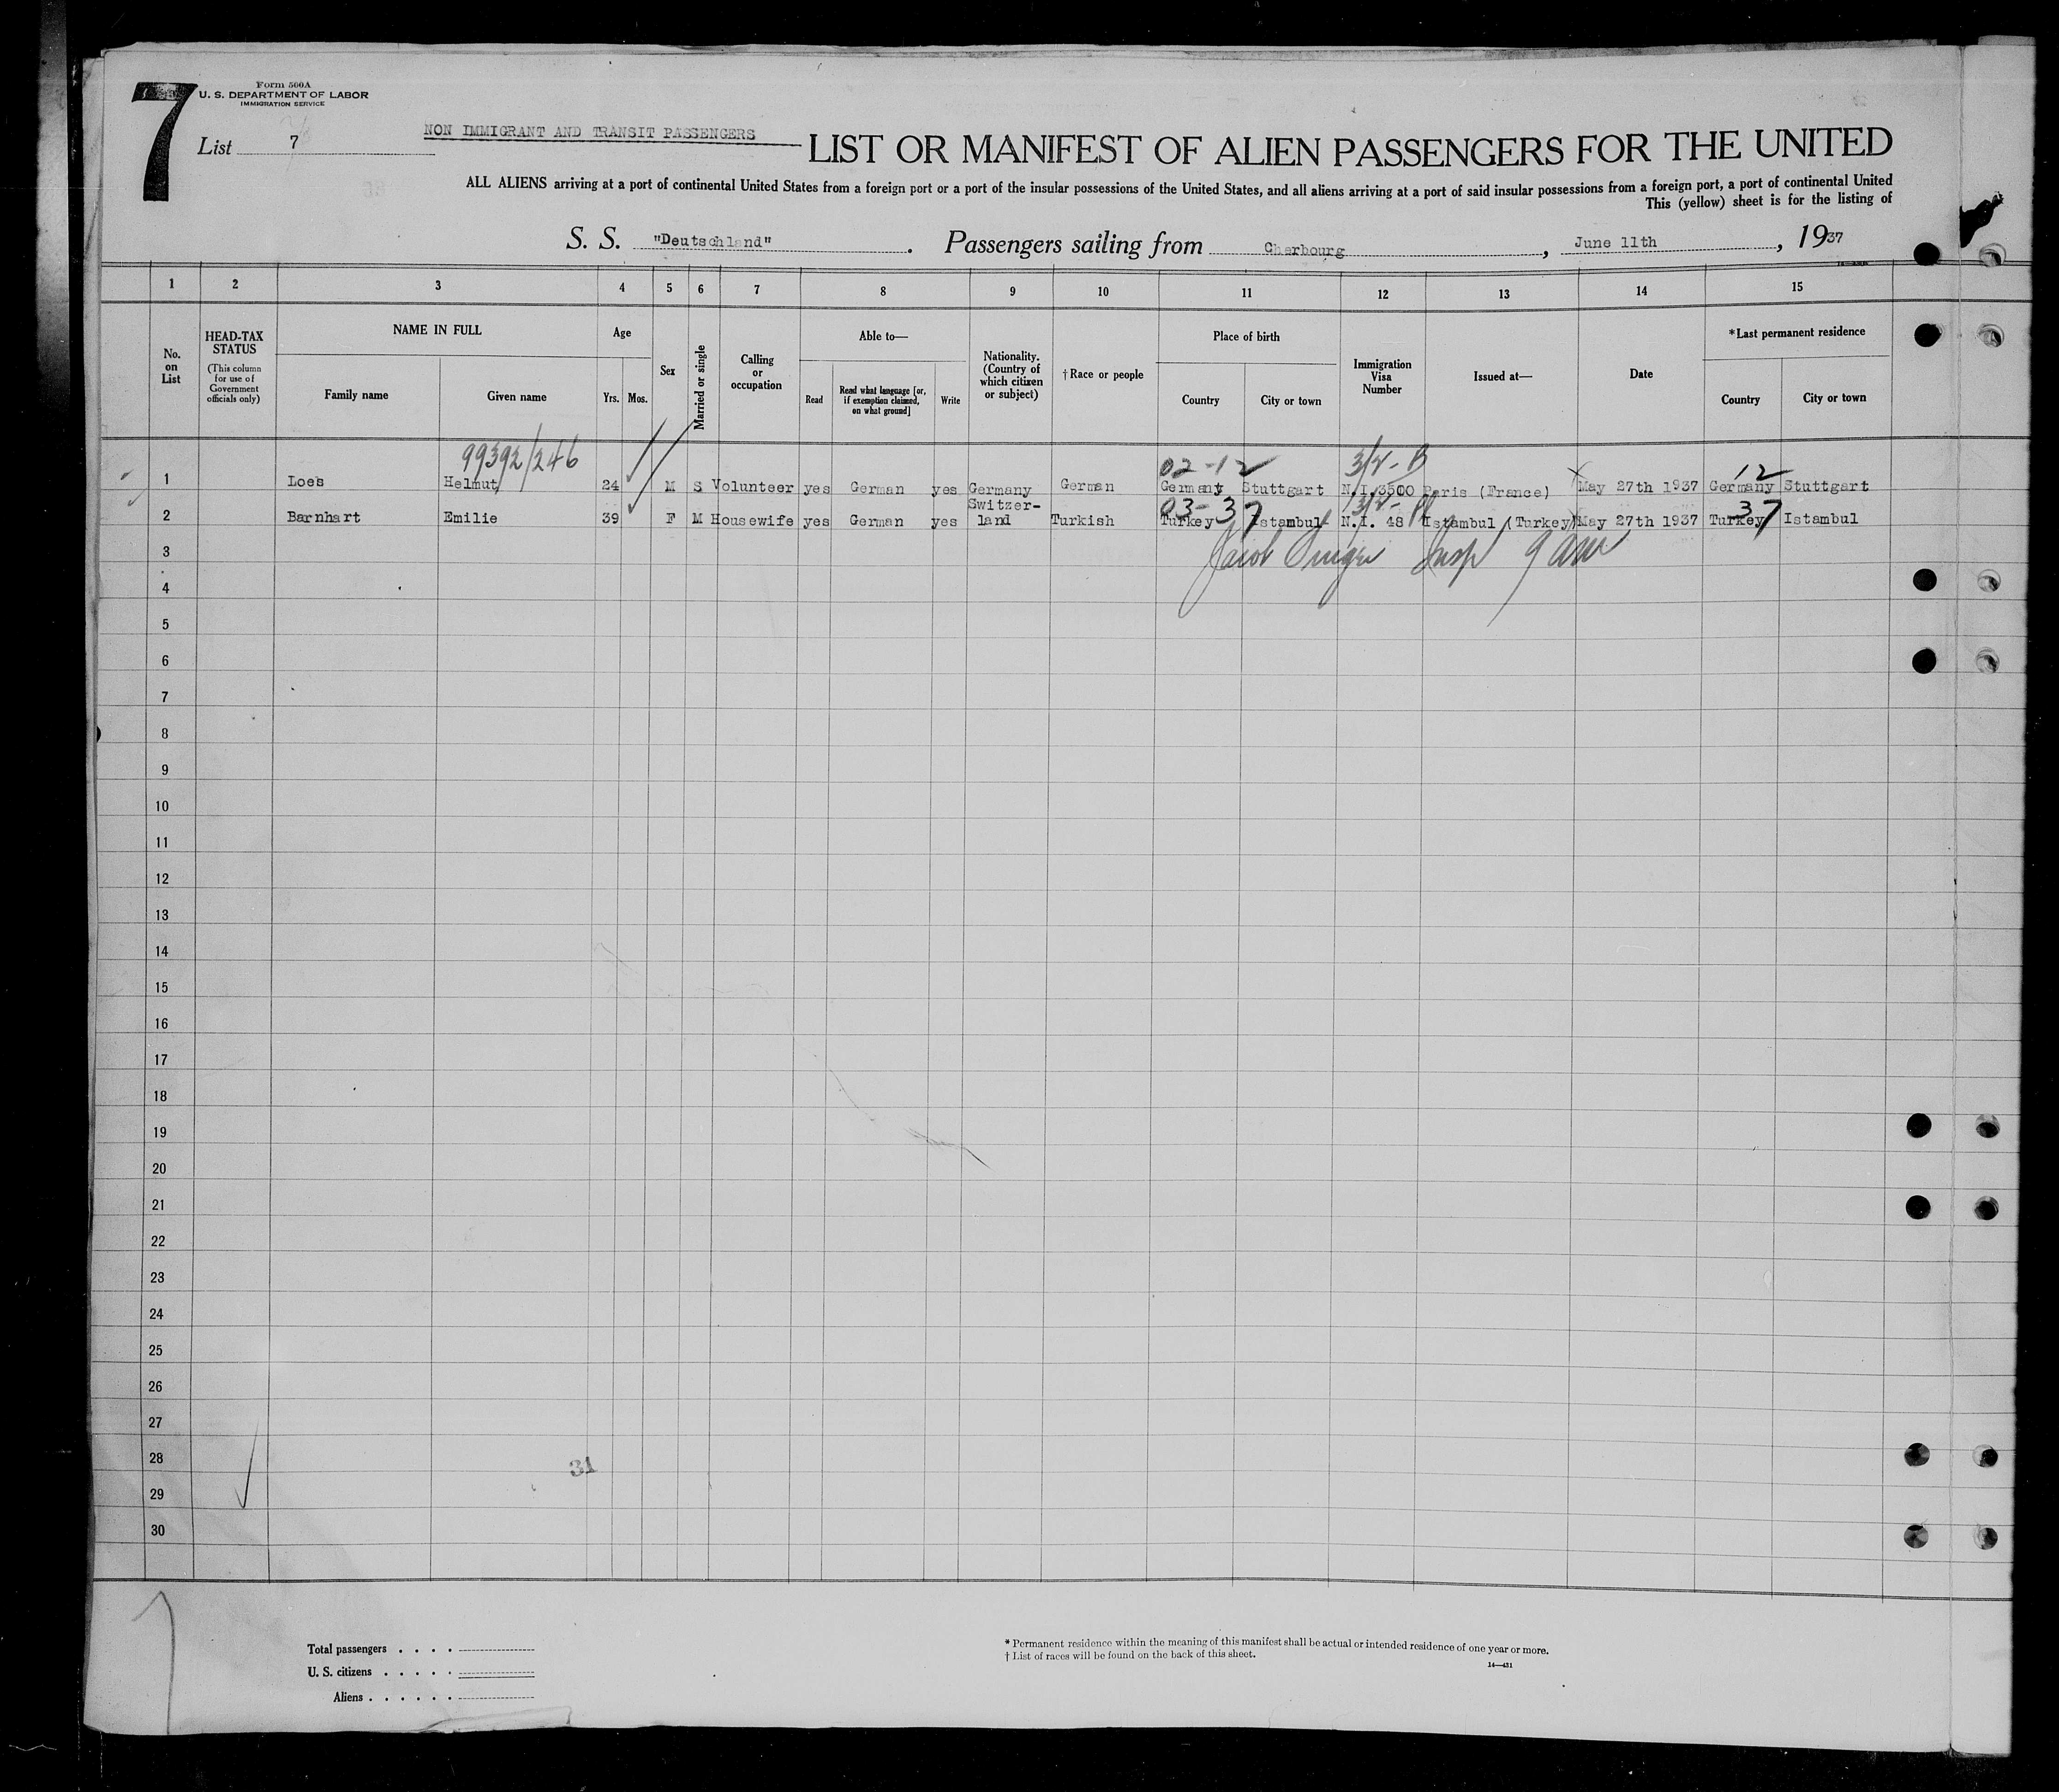 7
Form 500A
U. S. DEPARTMENT OF LABOR
IMMIGRATION SERVICE
List 7
NON IMMIGRANT AND TRANSIT PASSENGERS
LIST OR MANIFEST OF ALIEN PASSENGERS FOR THE UNITED
ALL ALIENS arriving at a port of continental United States from a foreign port or a port of the insular possessions of the United States, and all aliens arriving at a port of said insular possessions from a foreign port, a port of continental United
This (yellow) sheet is for the listing of
S. S. "Deutschland". Passengers sailing from Cherbourg, June 11th, 1937
1 2 3 4 5 6 7 8 9 10 11 12 13 14 15
No. on List
HEAD-TAX STATUS
(This column for use of Government officials only)
NAME IN FULL
Family name
Given name
Age
Yrs. Mos.
Sex
Married or single
Calling or occupation
Able to—
Read
Read what language [or, if exemption claimed, on what ground]
Write
Nationality. (Country of which citizen or subject)
†Race or people
Place of birth
Country
City or town
Immigration Visa Number
Issued at—
Date
*Last permanent residence
Country
City or town
99392/246
02-12
3/2-B
12
1 Loes Helmut 24 M S Volunteer yes German yes Germany German Germany Stuttgart N.I.3500 Paris (France) May 27th 1937 Germany Stuttgart
03-37
37
2 Barnhart Emilie 39 F M Housewife yes German yes Switzer-land Turkish Turkey Istambul N.I. 48 Istambul (Turkey) May 27th 1937 Turkey Istambul
Jacob Insp
3
4
5
6
7
8
9
10
11
12
13
14
15
16
17
18
19
20
21
22
23
24
25
26
27
28
31
29
30
Total passengers . . . .
U. S. citizens . . . . .
Aliens . . . . . .
* Permanent residence within the meaning of this manifest shall be actual or intended residence of one year or more.
† List of races will be found on the back of this sheet.
14—431